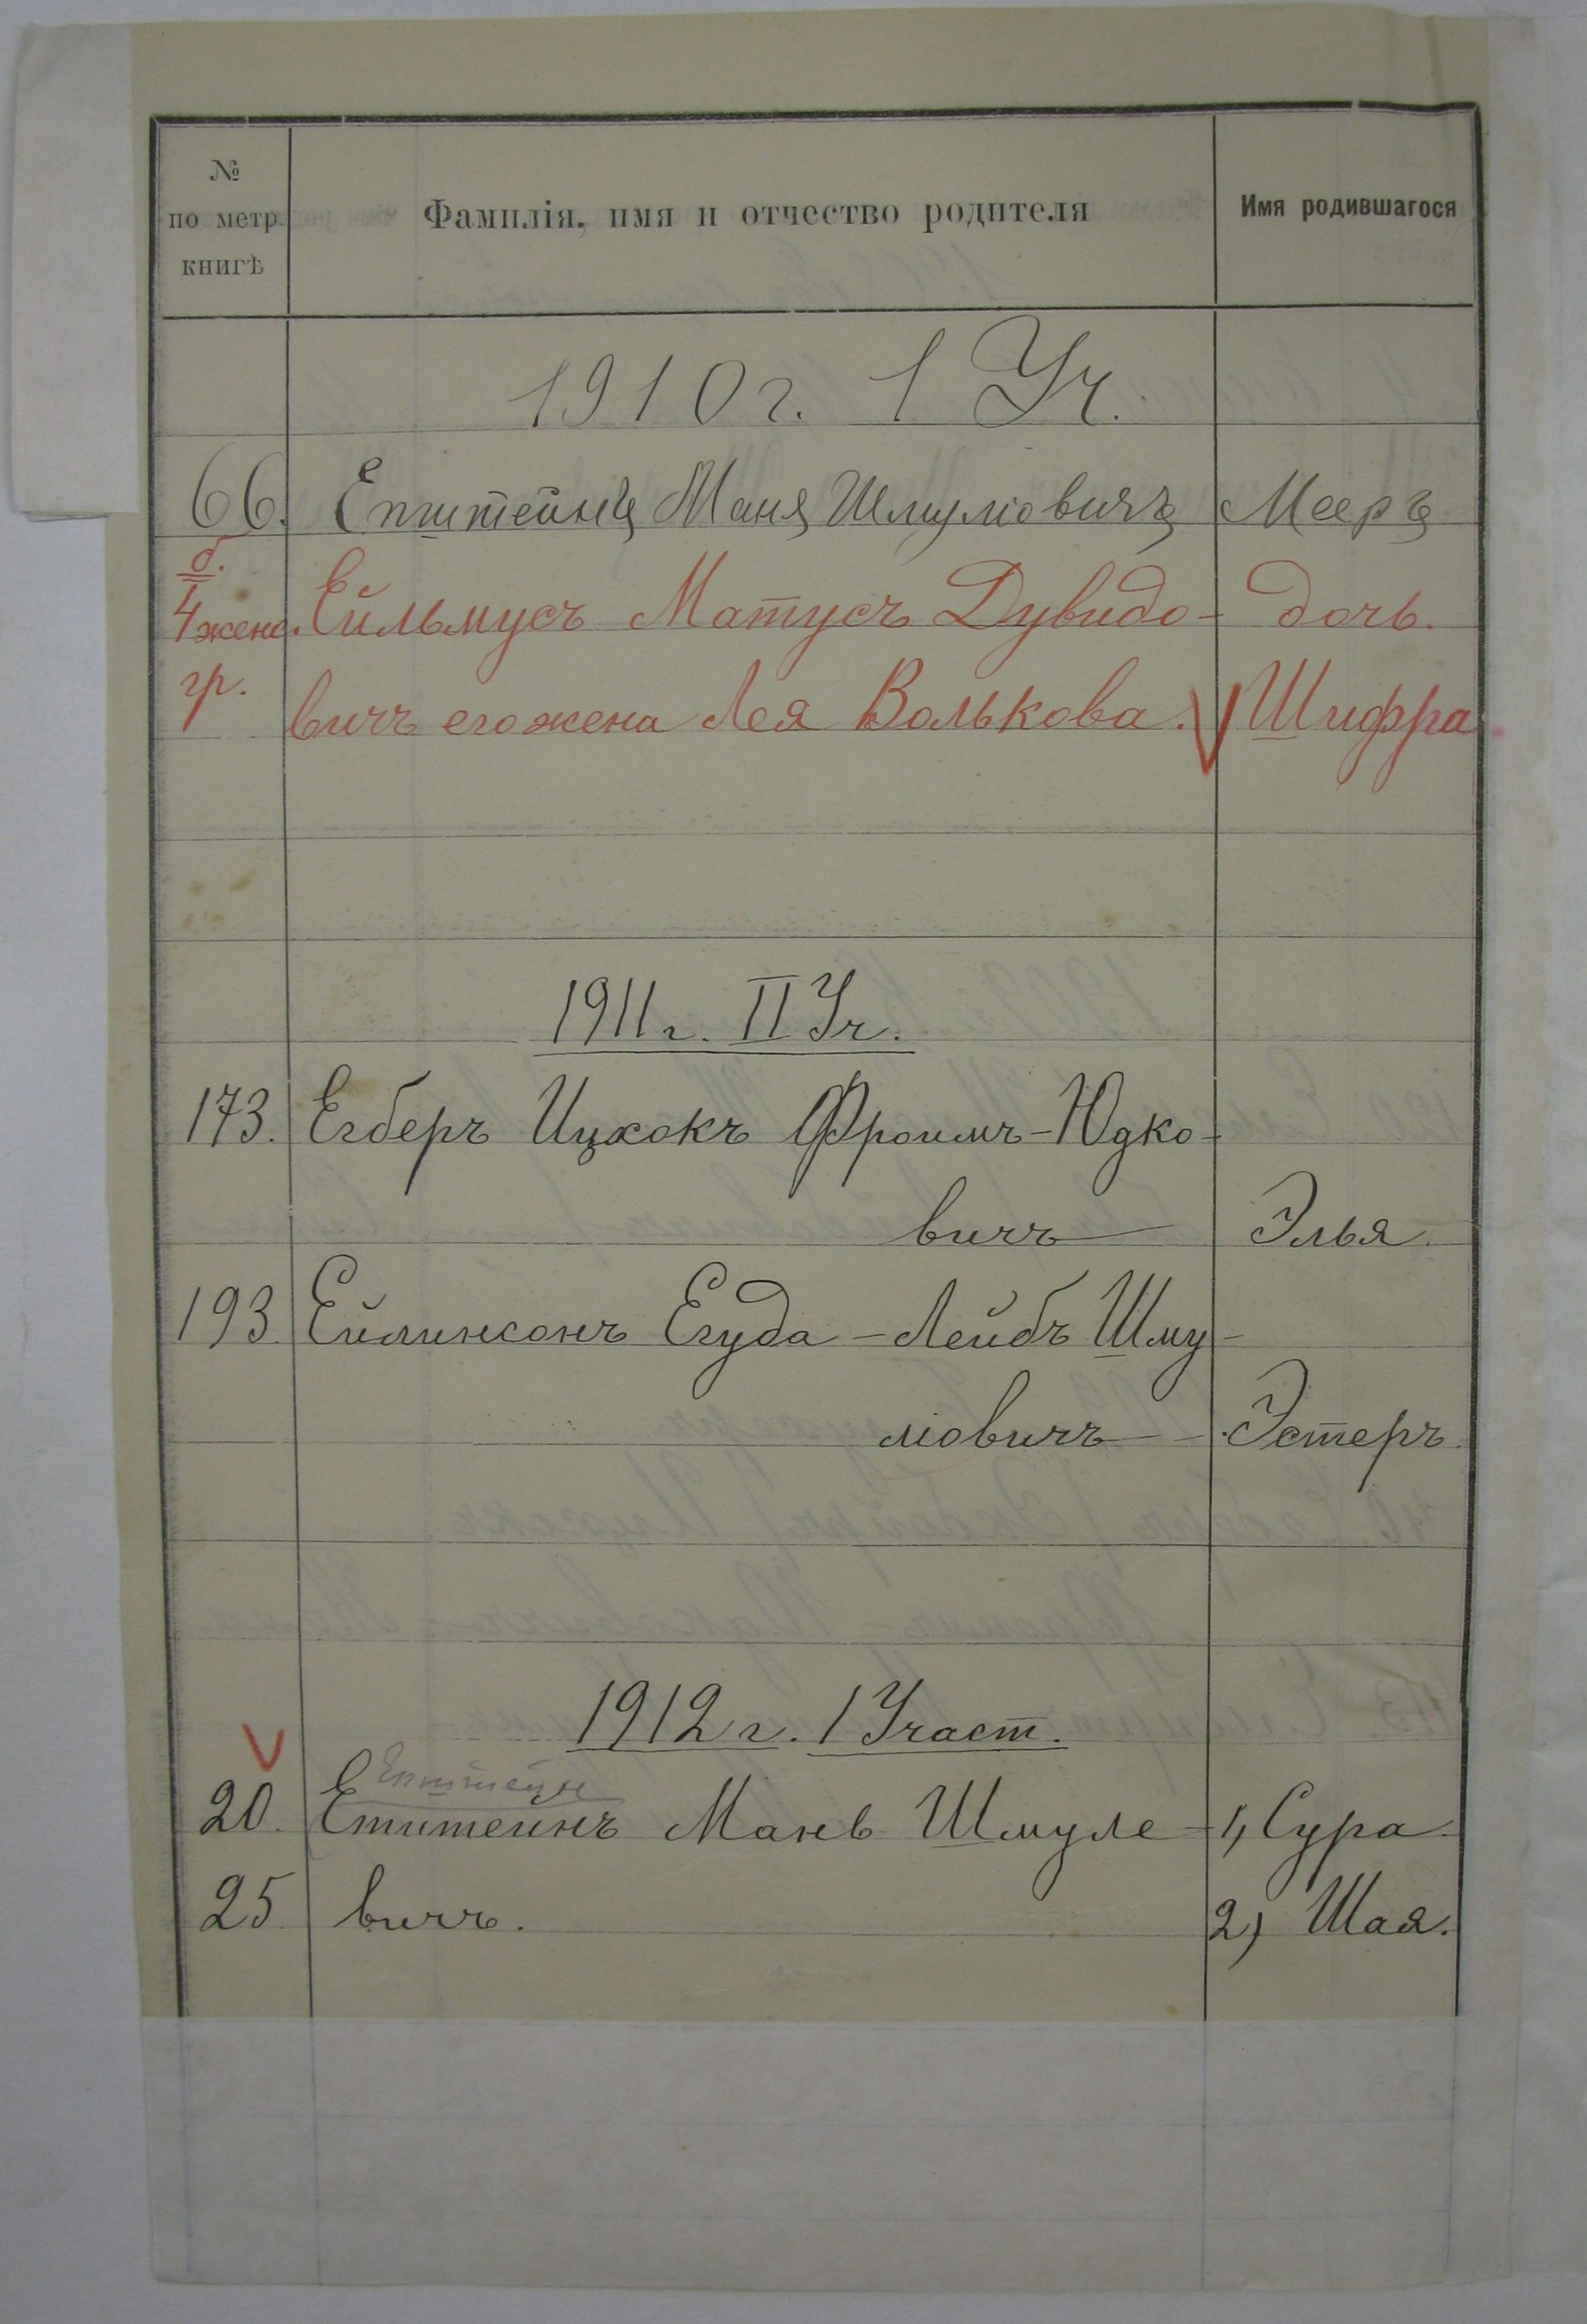 №
по метр.
книгѣ
Фамилія, имя и отчество родителя
Имя родившагося
1910 г. 1 Уч.
66. Епштейнъ Маня Шмуліовичъ Мееръ
б.
4 женс. Ейльмусъ Матусъ Дувидо- дочь.
гр. вичъ его жена Лея Волькова. V Шифра
1911 г. II Уч.
173. Егберъ Ицхокъ Фроимъ-Юдко-
вичъ Элья.
193. Ейлинсонъ Егуда-Лейбъ Шму-
ліовичъ Эстеръ.
1912 г. 1 Участ.
V Епштейн
20. Епштеинъ Манъ Шмуле- 1, Сура.
25 вичъ. 2) Шая.